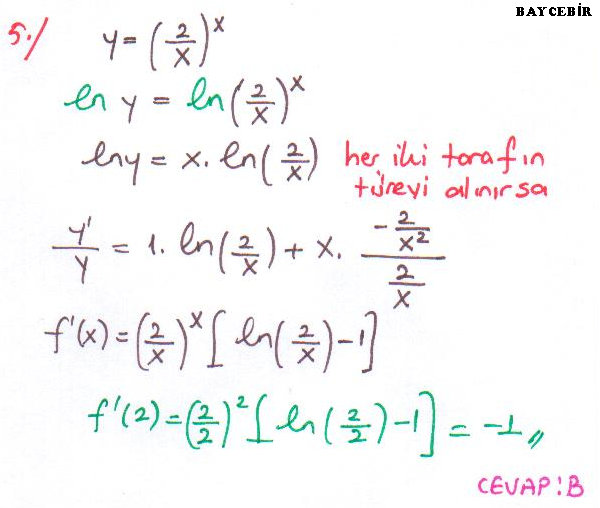 BAYCEBİR
5·/ y = (2/x)^x
ln y = ln(2/x)^x
lny = x. ln(2/x) her iki tarafın
türevi alınırsa
y'/y = 1. ln(2/x) + x. (-2/x²)/(2/x)
f'(x) = (2/x)^x [ln(2/x) -1]
f'(2) = (2/2)² [ln(2/2) -1] = -1//
CEVAP:B